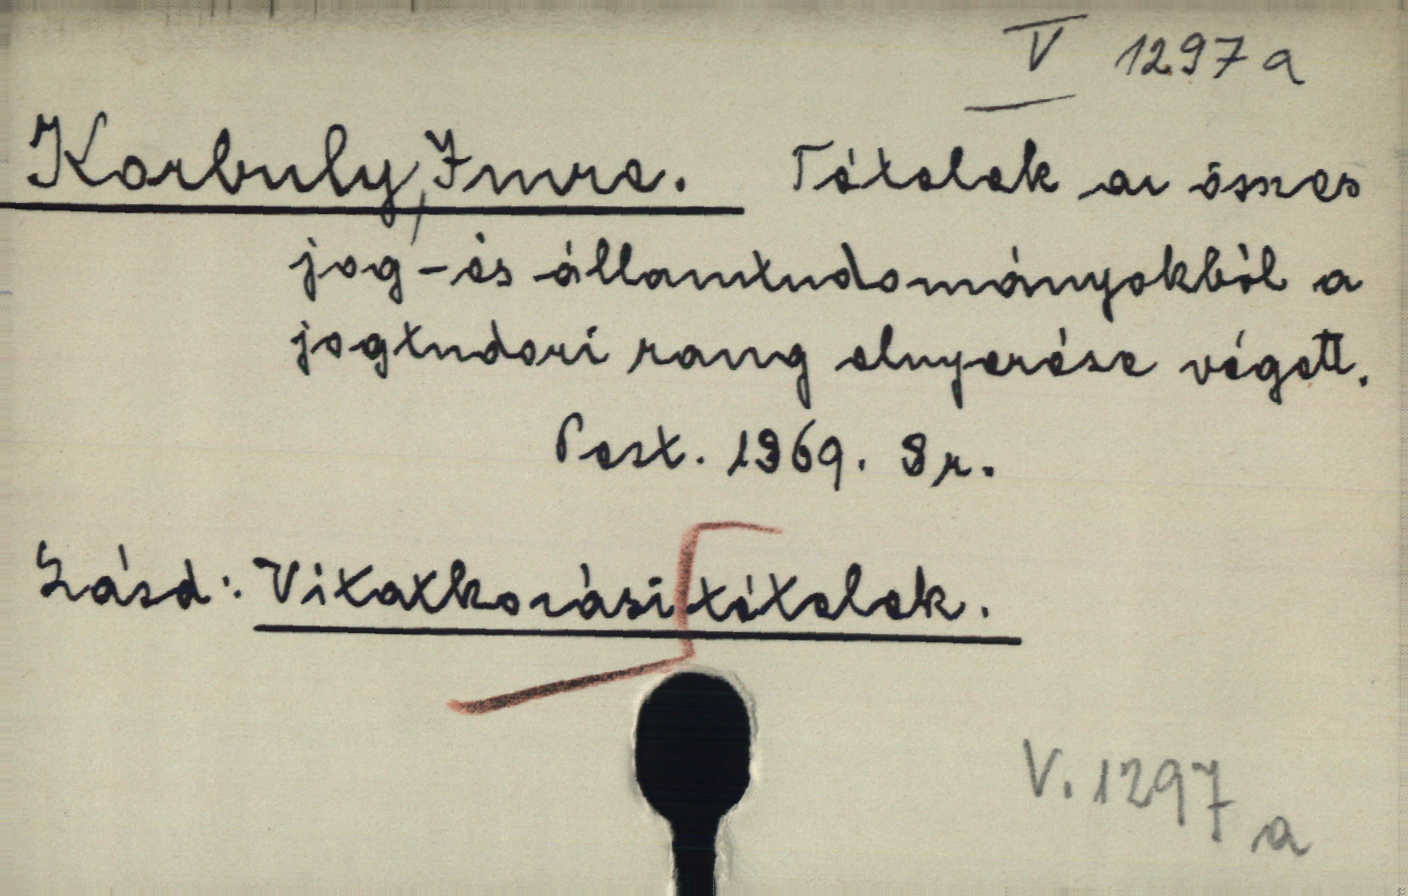 V 1297 a
Korbuly, Imre. Tételek az összes
jog-és államtudományokból a
jogtudori rang elnyerése végett.
Pest. 1869. 8r.
Lásd: Vitatkozási tételek.
V. 1297 a